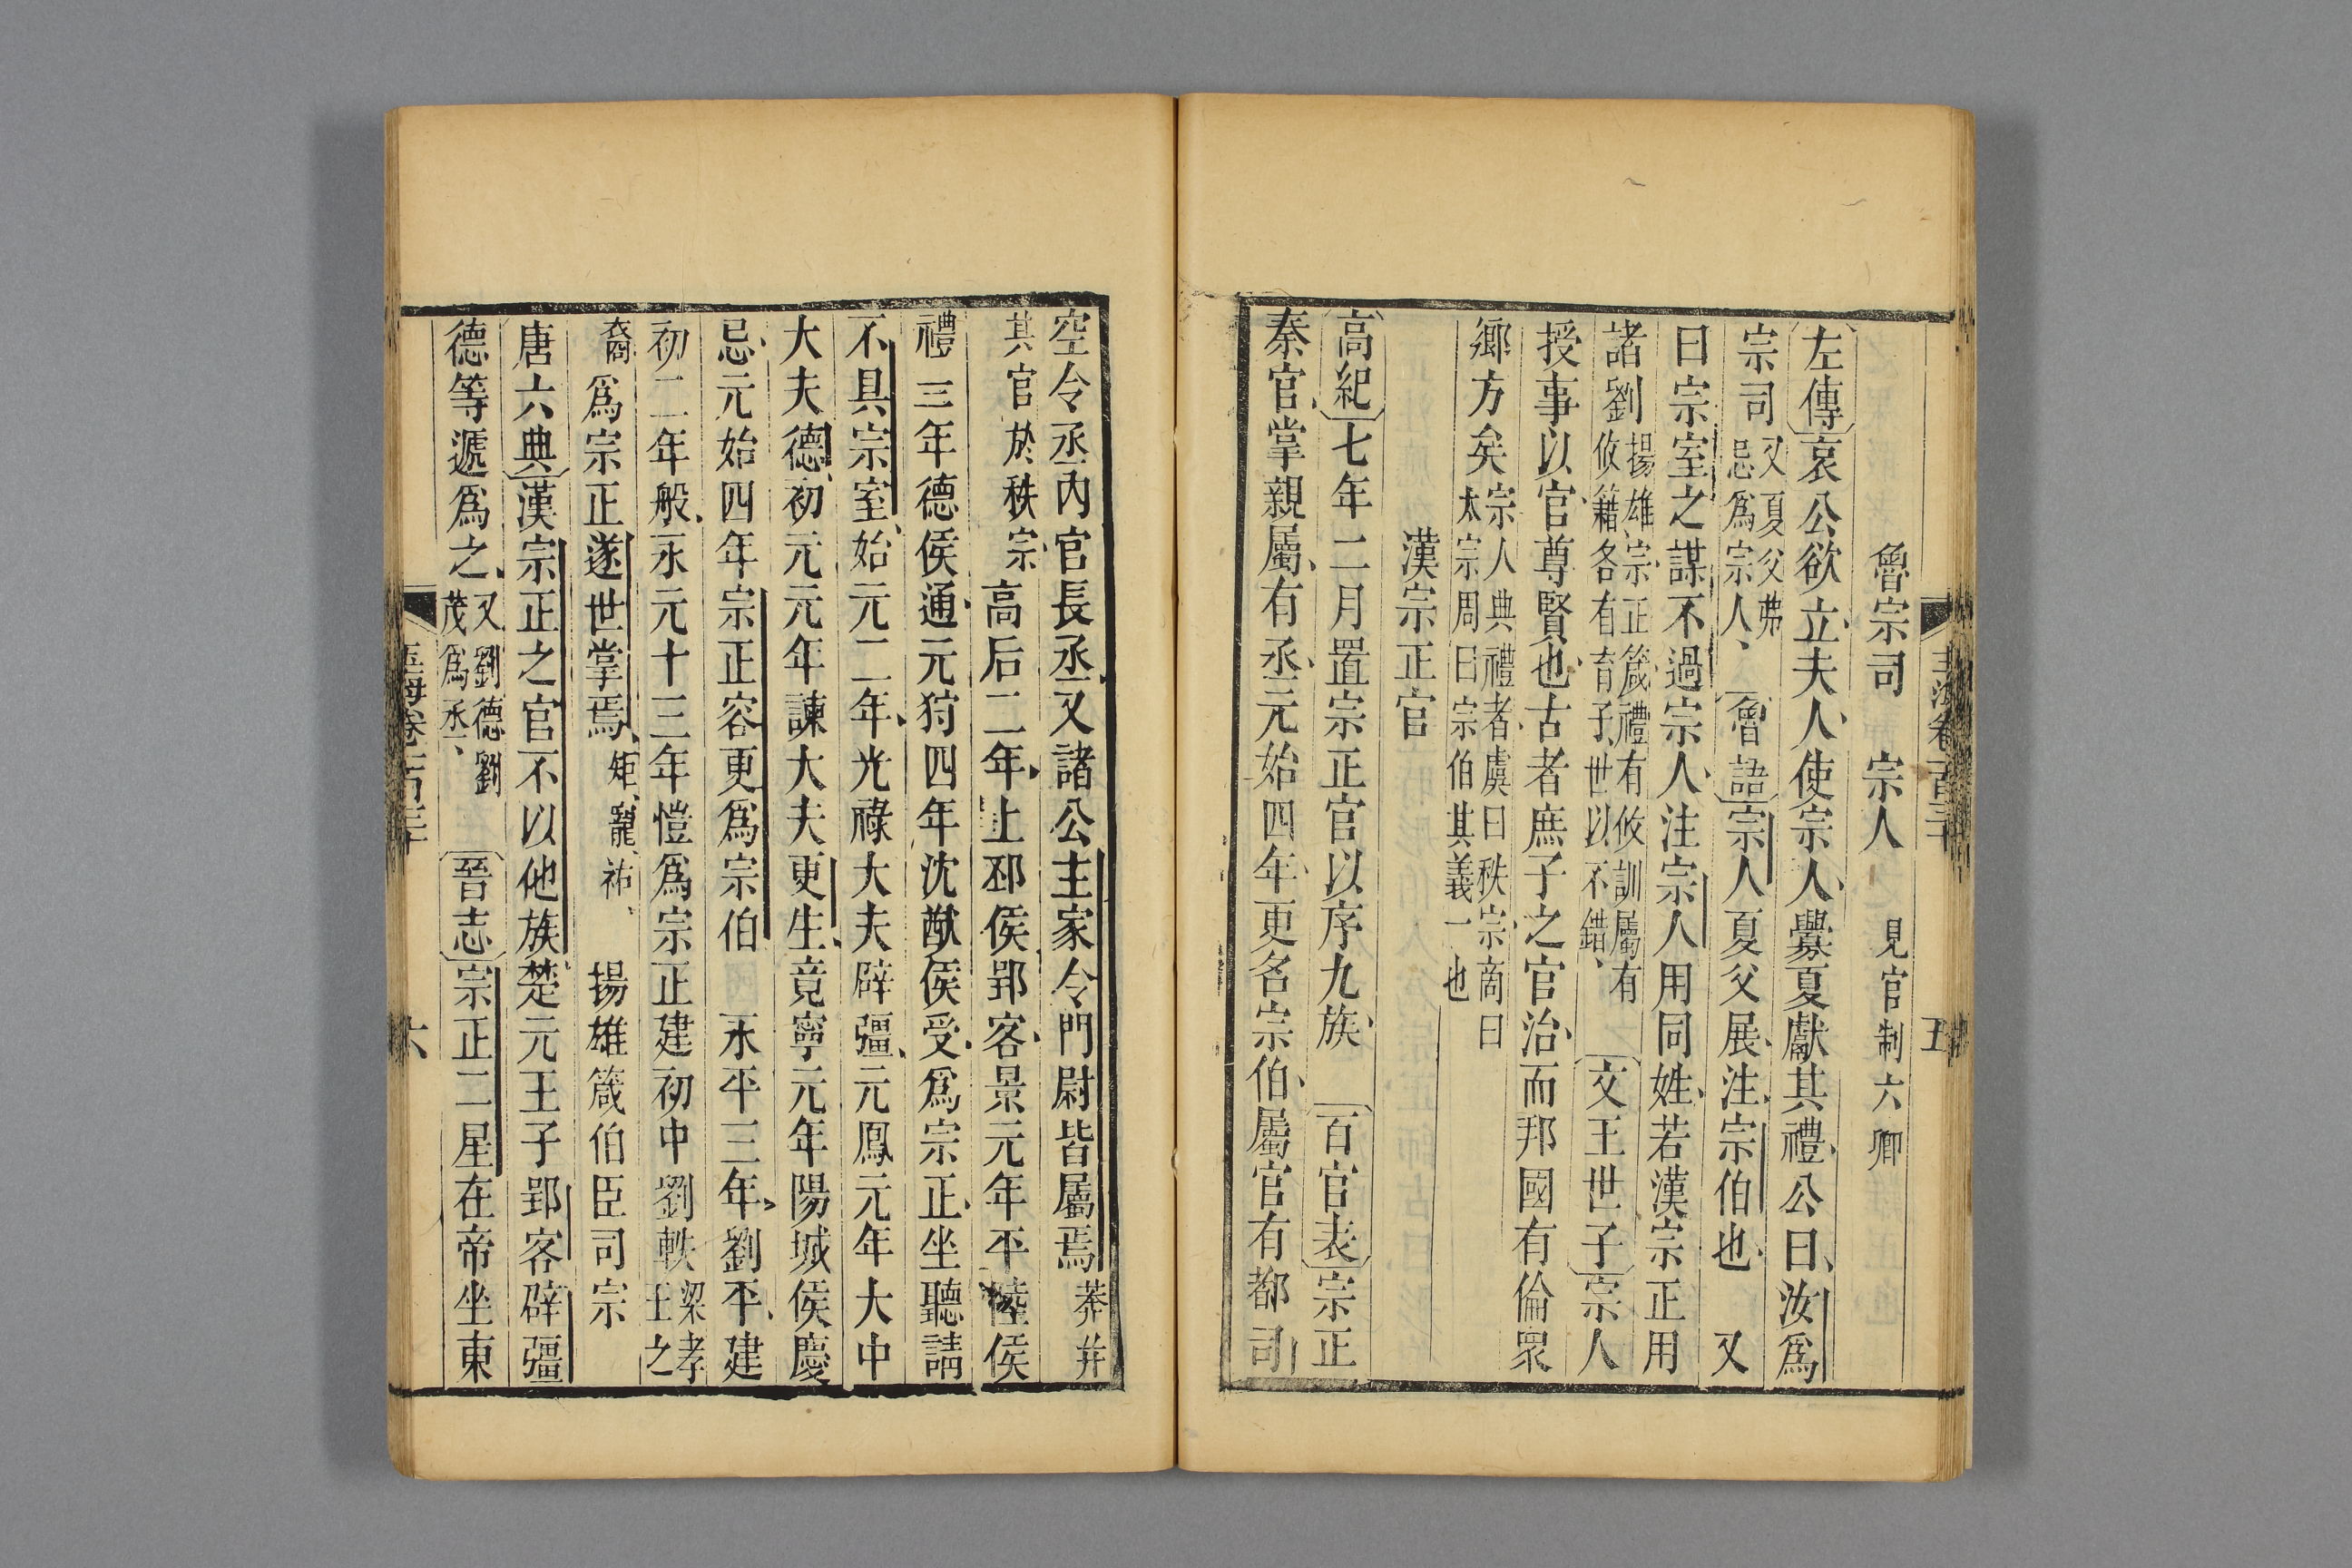 魯宗司　宗人　見官制六卿
左傳哀公欲立夫人使宗人釁夏獻其禮公曰汝爲
宗司又夏父弗忌爲宗人魯語宗人夏父展注宗伯也　又
曰宗室之謀不過宗人注宗人用同姓若漢宗正用
諸劉揚雄宗正箴禮有攸訓屬有攸籍各有育子世以不錯　文王世子宗人
授事以官尊賢也古者庶子之官治而邦國有倫衆
鄉方矣宗人典禮者虞曰秩宗商曰太宗周曰宗伯其義一也
漢宗正官
高紀七年二月置宗正官以序九族　百官表宗正
秦官掌親屬有丞元始四年更名宗伯屬官有都司
空令丞內官長丞又諸公主家令門尉皆屬焉莽并
其官於秩宗高后二年上邳侯郢客景元年平陸侯
禮三年德侯通元狩四年沈猷侯受爲宗正坐聽請
不具宗室始元二年光祿大夫辟彊元鳳元年大中
大夫德初元元年諫大夫更生竟寧元年陽城侯慶
忌元始四年宗正容更爲宗伯　永平三年劉平建
初二年般永元十三年愷爲宗正建初中劉軼梁孝王之
裔爲宗正遂世掌焉矩寵祐　揚雄箴伯臣司宗
唐六典漢宗正之官不以他族楚元王子郢客辟彊
德等遞爲之又劉德劉茂爲丞　晉志宗正二星在帝坐東
玉海卷一百三十　五
六